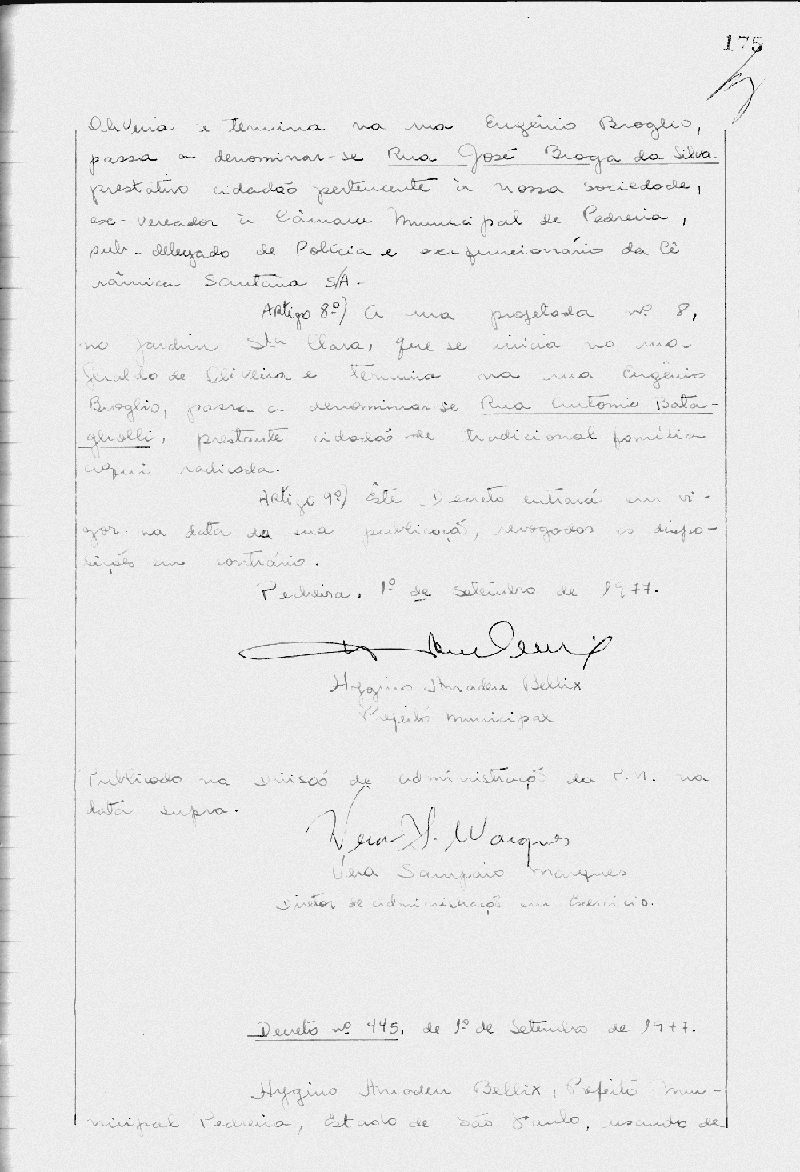 175
Oliveira e termina na rua Eugênio Broglio,
passa a denominar-se Rua José Braga da Silva.
prestativo cidadão pertencente à nossa sociedade,
ex-vereador à Câmara Municipal de Pedreira,
sub-delegado de Polícia e ex-funcionário da Cê
râmica Santana S/A.
Artigo 8º) A rua projetada nº 8,
no Jardim Sta Clara, que se inicia na rua
Geraldo de Oliveira e termina na rua Eugênio
Broglio, passa a denominar-se Rua Antônio Bata-
gholli, prestante cidadão de tradicional família
aqui radicada.
Artigo 9º) Êste Decreto entrará em vi-
gor na data da sua publicação, revogados as dispo-
sições em contrário.
Pedreira, 1º de Setembro de 1977.
Hygino Amadeu Bellix
Prefeito Municipal
Publicado na Divisão de administração da P.M. na
data supra.
Vera S. Marques
Vera Sampaio Marques
Diretor de administração em Exercício.
Decreto nº 445, de 1º de Setembro de 1977.
Hygino Amadeu Bellix, Prefeito Mu-
nicipal Pedreira, Estado de São Paulo, usando de